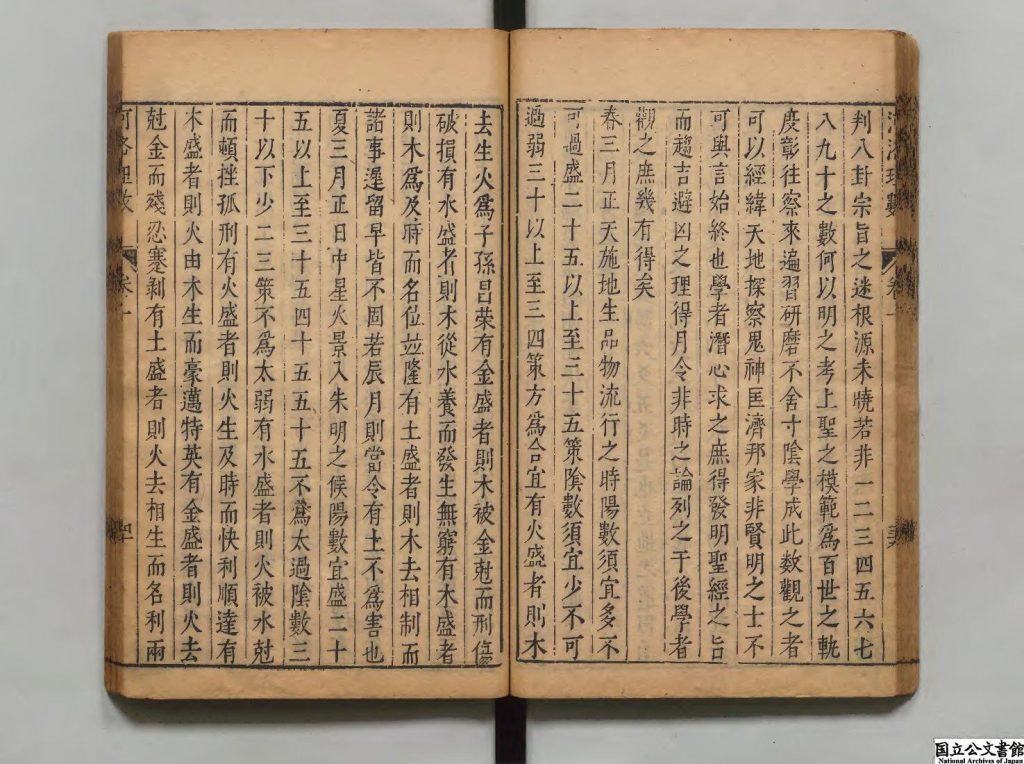 河洛理數 卷一
判八卦宗旨之迷根源未曉若非一二三四五六七
八九十之數何以明之考上聖之模範爲百世之軌
度彰往察來遍習研磨不舍寸陰學成此数觀之者
可以經緯天地探察鬼神匡濟邦家非賢明之士不
可與言始終也學者潛心求之庶得發明聖經之旨
而趨吉避凶之理得月令非時之論列之于後學者
觀之庶幾有得矣
春三月正天施地生品物流行之時陽數須宜多不
可過盛二十五以上至三十五策陰數須宜少不可
過弱三十以上至三四策方爲合宜有火盛者則木
去生火爲子孫昌荣有金盛者則木被金尅而刑傷
破損有水盛者則木從水養而發生無窮有木盛者
則木爲及時而名位並隆有土盛者則木去相制而
諸事遲留早皆不固若辰月則當令有土不爲害也
夏三月正日中星火景入朱明之候陽數宜盛二十
五以上至三十五四十五五十五不爲太過陰數三
十以下少二三策不爲太弱有水盛者則火被水尅
而頓挫孤刑有火盛者則火生及時而快利順達有
木盛者則火由木生而豪邁特英有金盛者則火去
尅金而殘忍蹇剥有土盛者則火去相生而名利兩
河洛理数 卷一
国立公文書館
National Archives of Japan